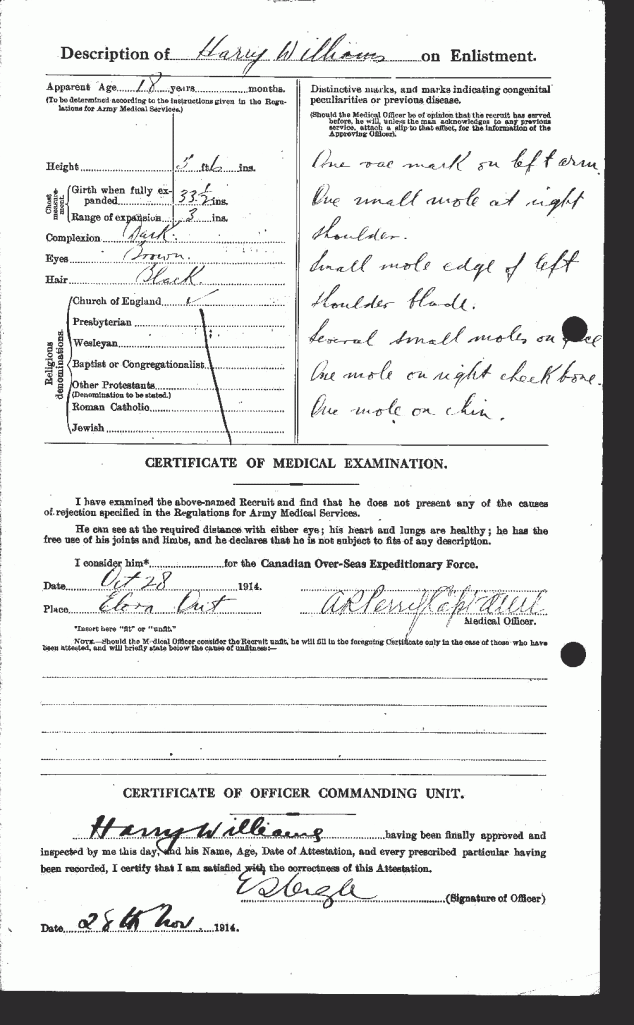 Description of Harry Williams on Enlistment.
Apparent Age 18 years months.
(To be determined according to the instructions given in the Regulations for Army Medical Services.)
Height 5 ft. 6 ins.
Chest measurement.
Girth when fully expanded 33 1/2 ins.
Range of expansion 3 ins.
Complexion Dark.
Eyes Brown.
Hair Black.
Religious denominations.
Church of England ✓
Presbyterian
Wesleyan
Baptist or Congregationalist
Other Protestants
(Denomination to be stated.)
Roman Catholic
Jewish
Distinctive marks, and marks indicating congenital
peculiarities or previous disease.
(Should the Medical Officer be of opinion that the recruit has served
before, he will, unless the man acknowledges to any previous
service, attach a slip to that effect, for the information of the
Approving Officer).
One vac mark on left arm.
One small mole at right
shoulder.
Small mole edge of left
shoulder blade.
Several small moles on face
One mole on right cheek bone.
One mole on chin.
CERTIFICATE OF MEDICAL EXAMINATION.
I have examined the above-named Recruit and find that he does not present any of the causes
of rejection specified in the Regulations for Army Medical Services.
He can see at the required distance with either eye; his heart and lungs are healthy; he has the
free use of his joints and limbs, and he declares that he is not subject to fits of any description.
I consider him* for the Canadian Over-Seas Expeditionary Force.
Date Oct 28 1914.
Place Elora Ont
Medical Officer.
*Insert here "fit" or "unfit."
NOTE.—Should the Medical Officer consider the Recruit unfit, he will fill in the foregoing Certificate only in the case of those who have
been attested, and will briefly state below the cause of unfitness:—
CERTIFICATE OF OFFICER COMMANDING UNIT.
Harry Williams having been finally approved and
inspected by me this day, and his Name, Age, Date of Attestation, and every prescribed particular having
been recorded, I certify that I am satisfied with the correctness of this Attestation.
(Signature of Officer)
Date 28th Nov 1914.